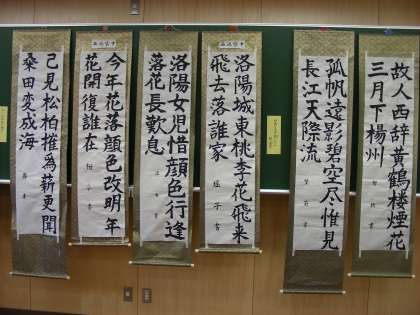 故人西辞黄鶴楼煙花
三月下楊州
孤帆遠影碧空尽惟見
長江天際流
洛陽城東桃李花飛来
飛去落誰家
洛陽女児惜顔色行逢
落花長歎息
今年花落顔色改明年
花開復誰在
已見松柏摧為薪更聞
桑田変成海